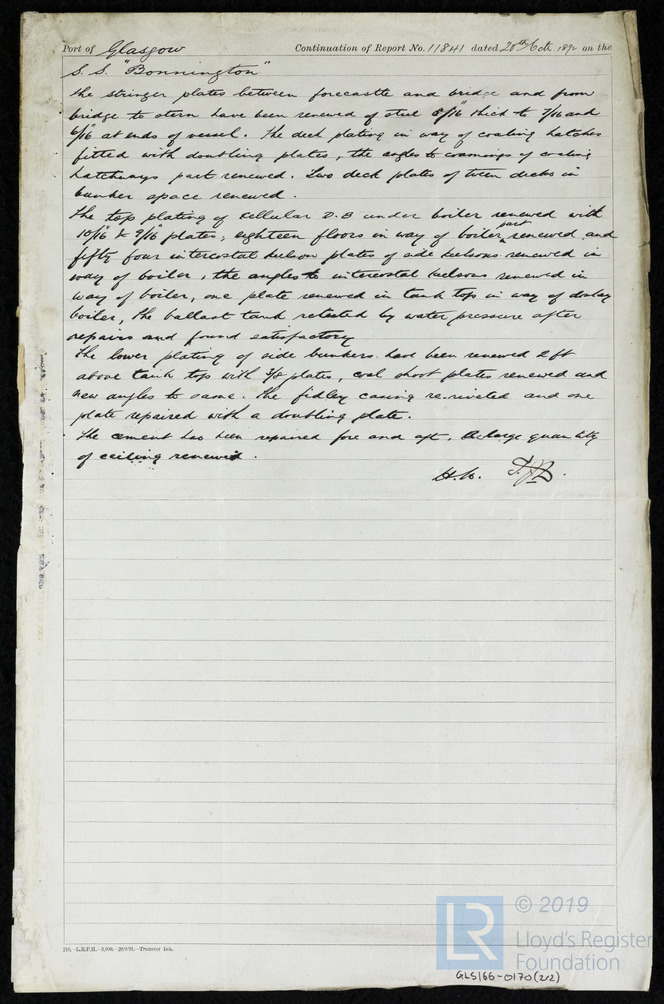 Port of Glasgow Continuation of Report No. 11841 dated 20th Oct. 1892 on the
S. S. "Bonnington"
the stringer plates between forecastle and bridge and from
bridge to stern have been renewed of steel 8/16 thick to 7/16 and
6/16 at ends of vessel. The deck plating in way of coaling hatches
fitted with doubling plates, the angles to coamings of coaling
hatchways part renewed. Two deck plates of tween decks in
bunker space renewed.
The top plating of cellular D.B under boiler renewed with
10/16 & 9/16 plates, eighteen floors in way of boiler part renewed and
fifty four intercostal keelson plates of side keelsons renewed in
way of boiler, the angles to intercostal keelsons renewed in
way of boiler, one plate renewed in tank top in way of donkey
boiler, the ballast tank retested by water pressure after
repairs and found satisfactory
The lower plating of side bunkers had been renewed 2ft
above tank top with 3/8 plates, coal shoot plates renewed and
new angles to same. The fidley casing re-riveted and one
plate repaired with a doubling plate.
The cement has been repaired fore and aft. A large quantity
of ceiling renewed.
110.-L.R.P.H.-3,000.-28/9/91.-Transfer Ink.
LR
© 2019
Lloyd's Register
Foundation
GLS166-0170(2/2)